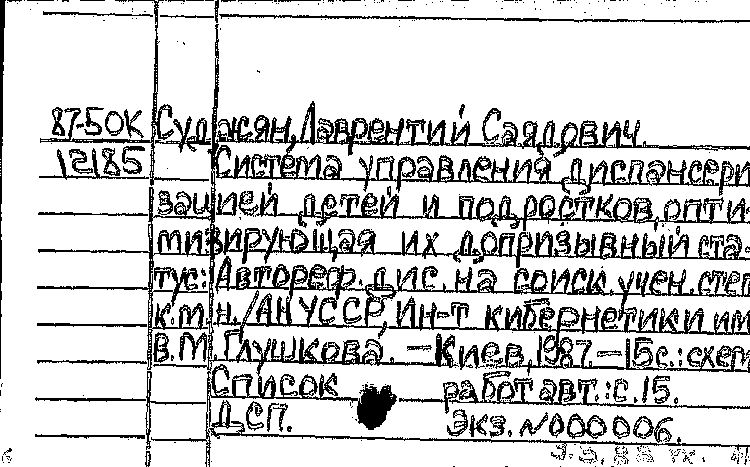 87-50К Суджян, Лаврентий Саядович.
12185 Система управления диспансери-
зацией детей и подростков, опти-
мизирующая их допризывный ста-
тус: Автореф. дис. на соиск. учен. степ
к.т.н. /АН УССР, Ин-т кибернетики им
В.М. Глушкова. — Киев, 1987. — 15 с.: схем
Список работ авт.: с. 15.
ДСП. Экз. №000006.